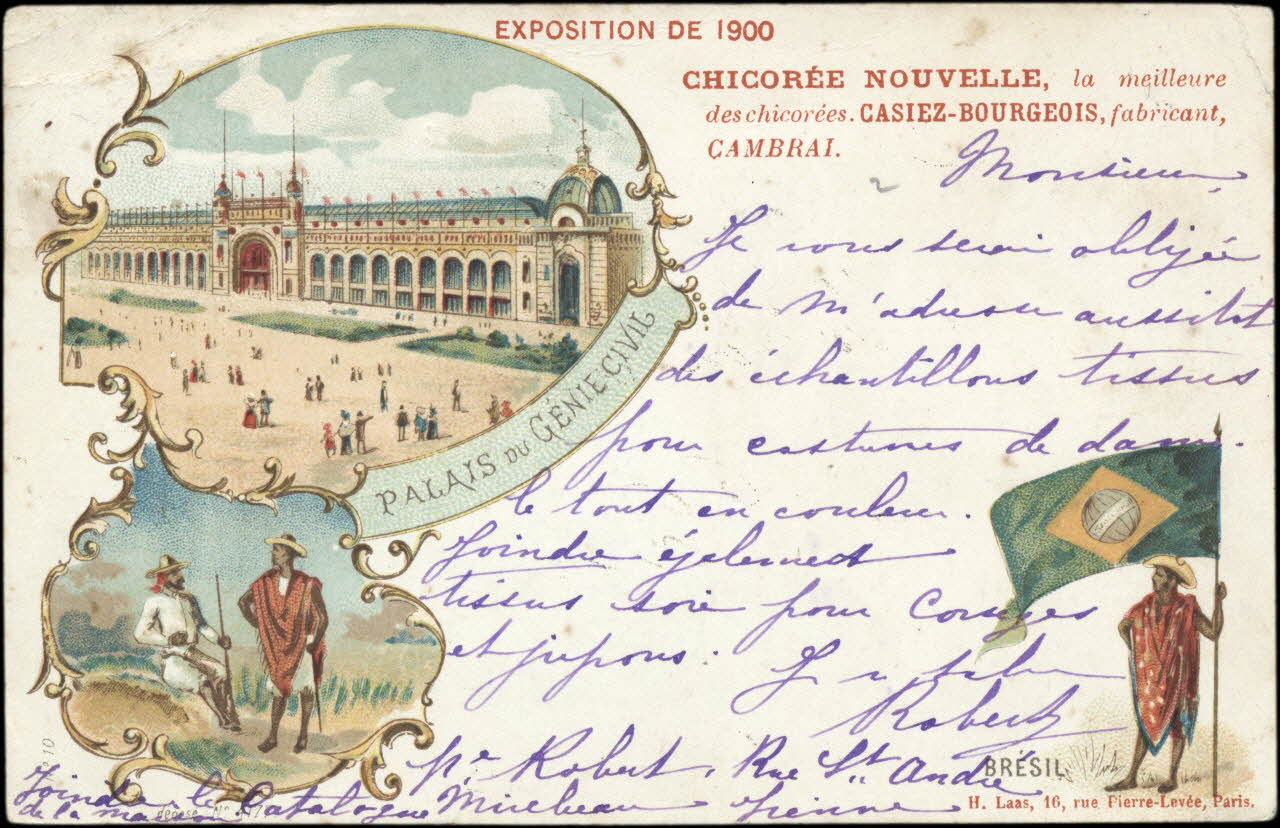 EXPOSITION DE 1900
CHICORÉE NOUVELLE, la meilleure
des chicorées. CASIEZ-BOURGEOIS, fabricant,
CAMBRAI.
PALAIS DU GÉNIE CIVIL
Monsieur,
Je vous serai obligée
de m'adresser aussitot
des échantillons tissus
pour costumes de dame.
le tout en couleur.
Joindre également
tissus soie pour
et jupons.
Robert
Mr. Robert. Rue St. André
Mirebeau Vienne
Joindre le Catalogue
de la maison
BRÉSIL
H. Laas, 16, rue Pierre-Levée, Paris.